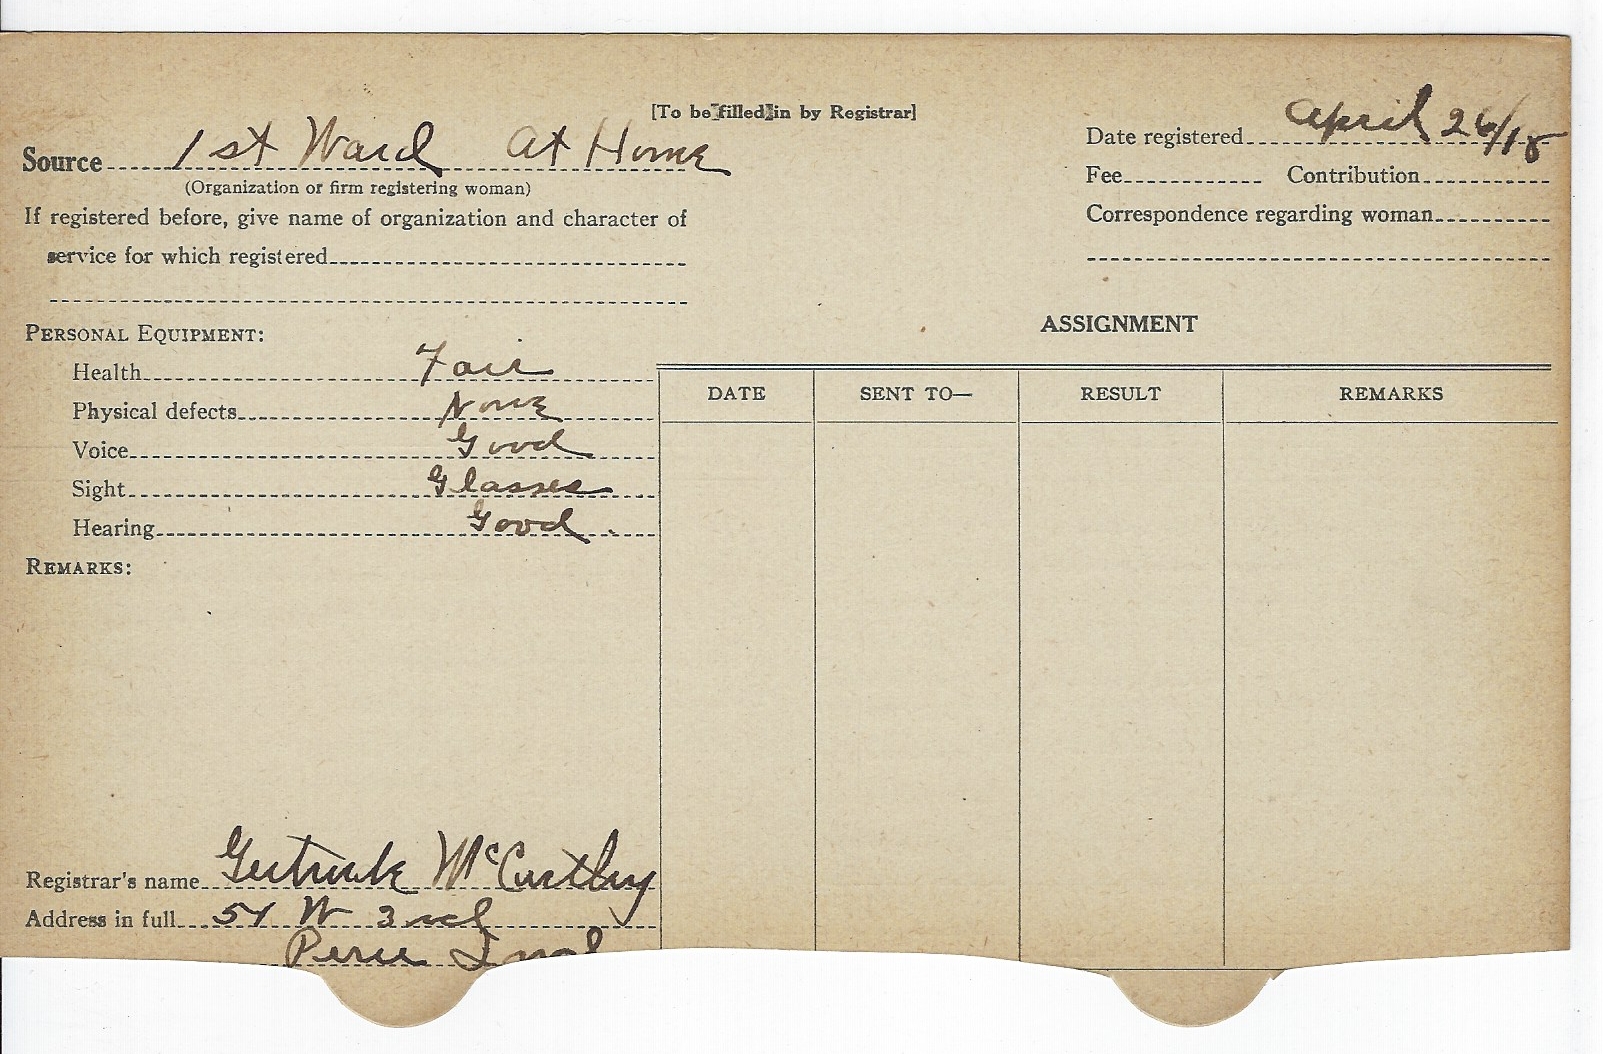 [To be filled in by Registrar]
Source 1st Ward At Home
(Organization or firm registering woman)
If registered before, give name of organization and character of
service for which registered
Date registered April 26/18
Fee Contribution
Correspondence regarding woman
PERSONAL EQUIPMENT:
Health Fair
Physical defects None
Voice Good
Sight Glasses
Hearing Good
REMARKS:
ASSIGNMENT
DATE SENT TO— RESULT REMARKS
Registrar's name Gertrude McCarthy
Address in full 54 W 3rd
Peru Ind